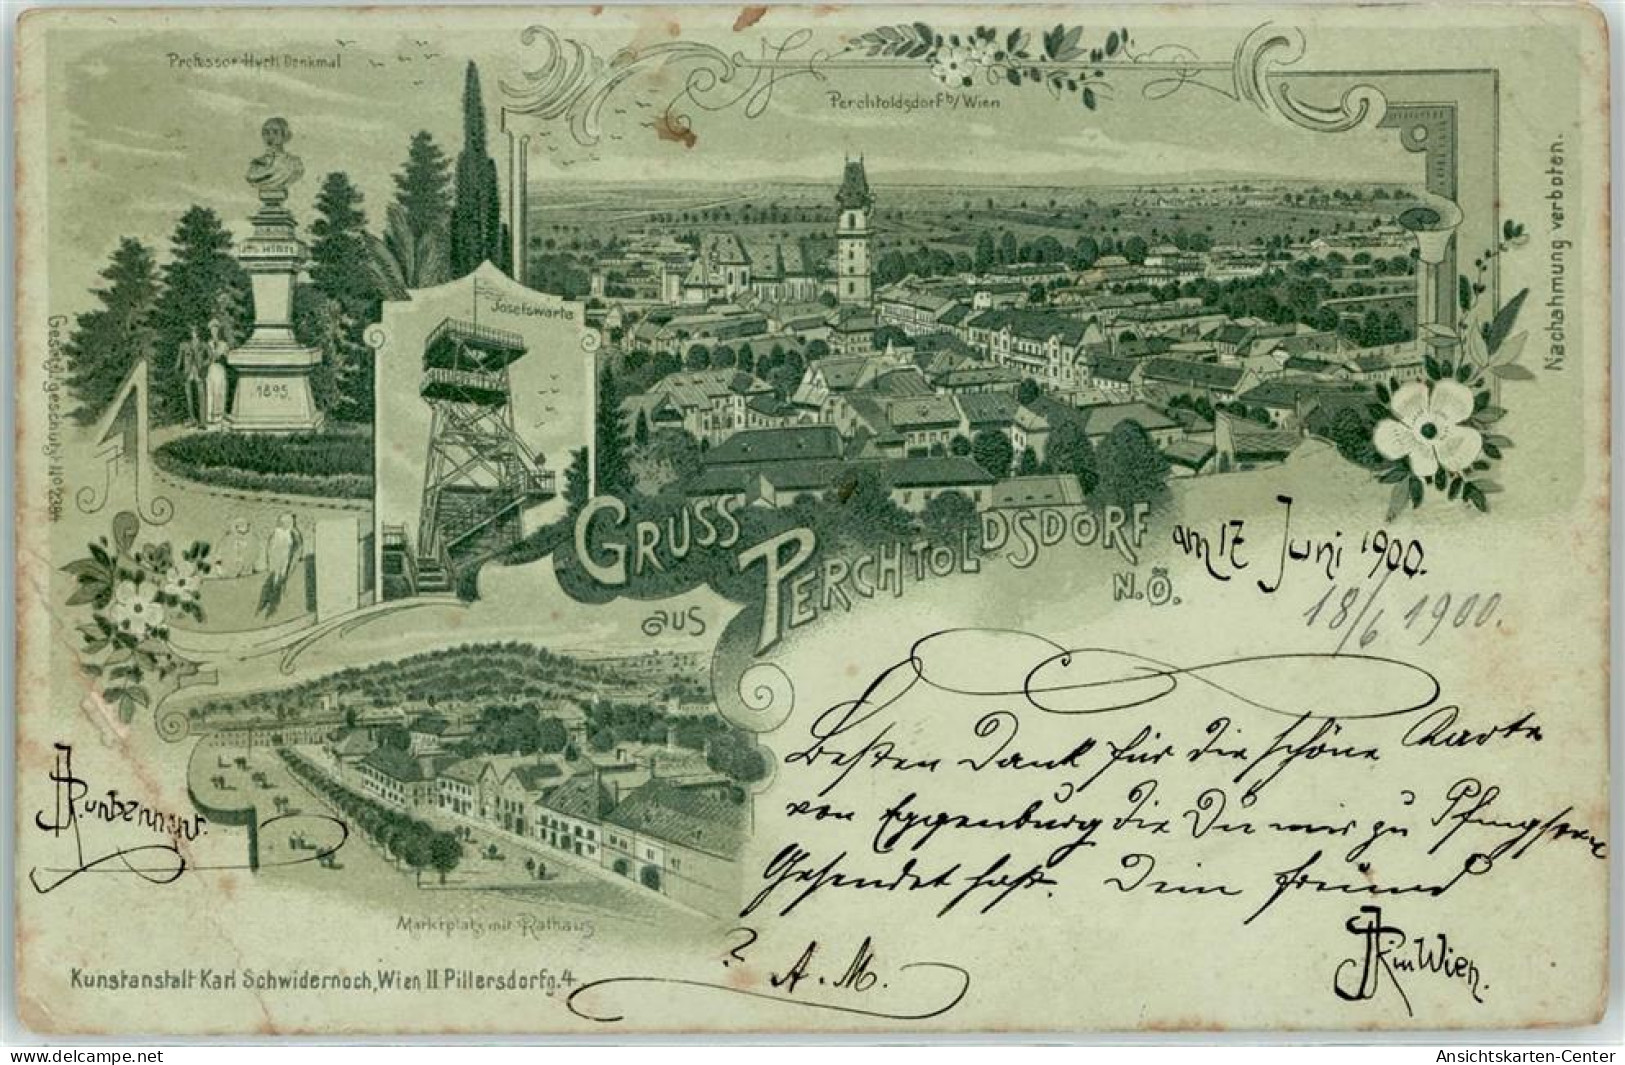 Professor Hyrtl Denkmal
Perchtoldsdorf b/Wien
Nachahmung verboten.
1895
Josefswarte
GRUSS
aus
PERCHTOLDSDORF
N.Ö.
am 17 Juni 1900.
18/6 1900.
Besten Dank für die schöne Karte
von Eggenburg die Du mir zu Pfingsten
Gesendet hast. Dein Freund
in Wien.
? A. M.
Marktplatz mit Rathaus
Kunstanstalt Karl Schwidernoch, Wien II Pillersdorfg. 4.
delcampe.net
Ansichtskarten-Center